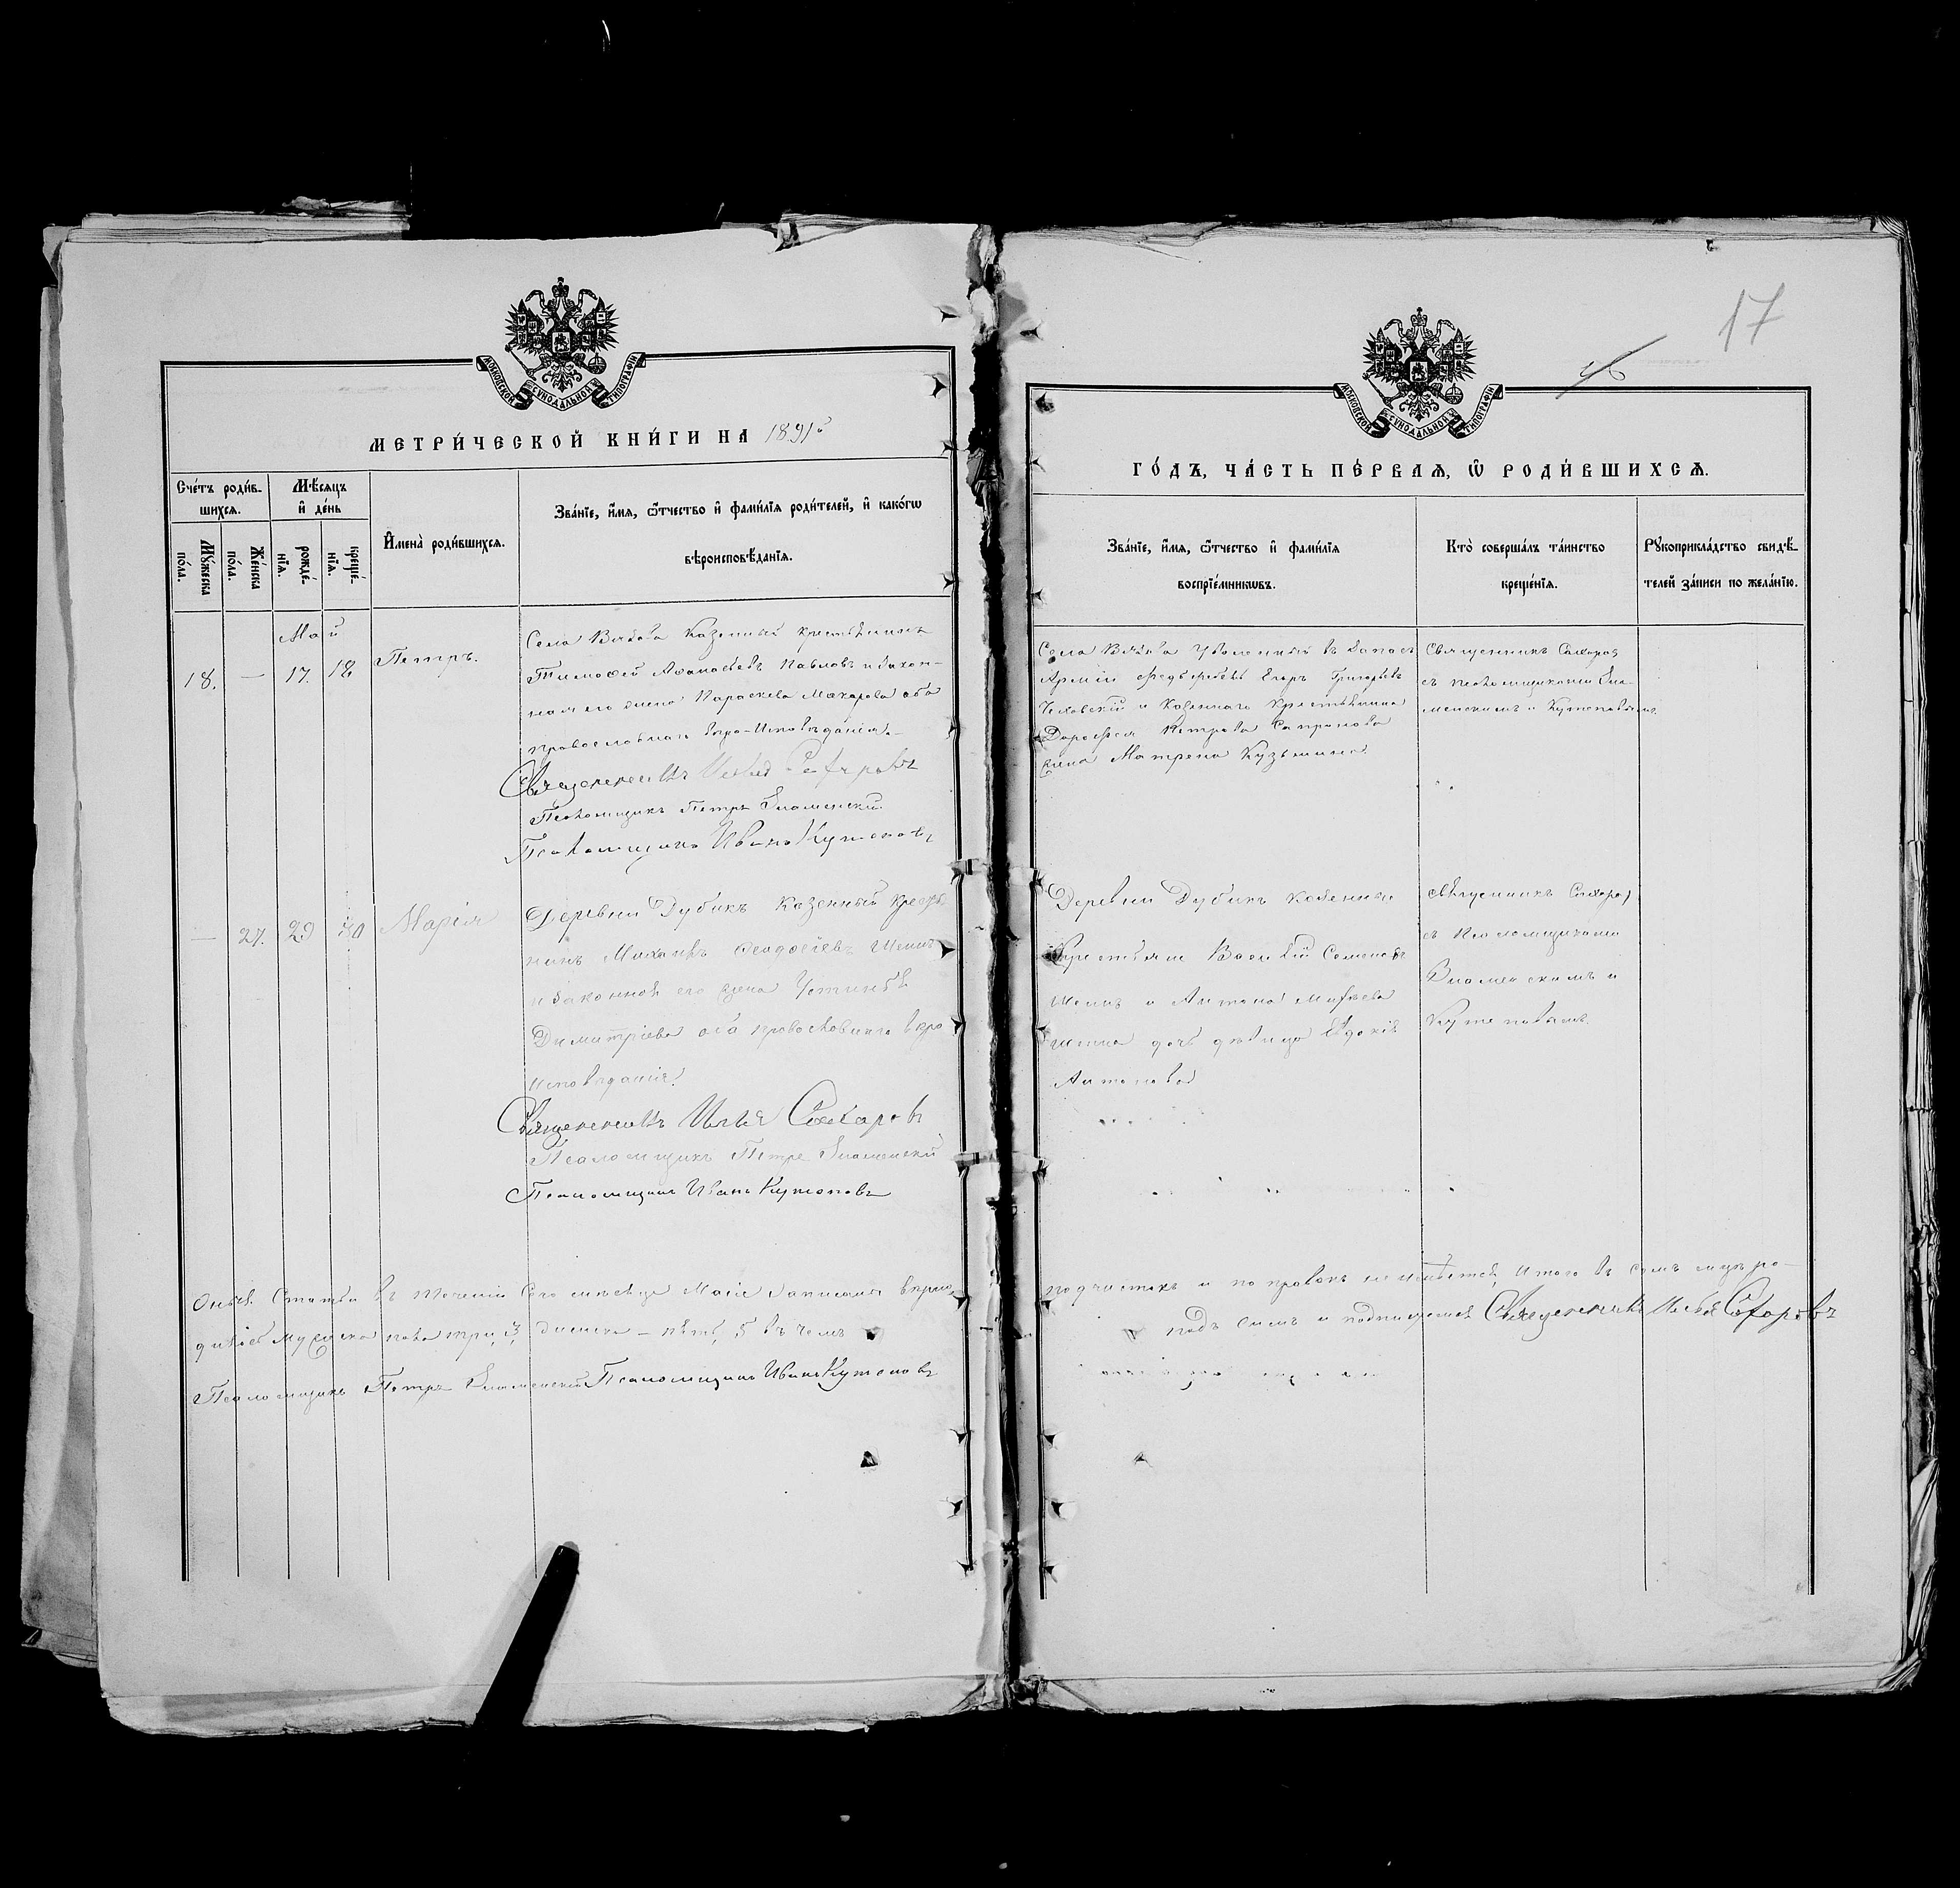 17
МОСКОВСКОЙ СУНОДАЛЬНОЙ ТИПОГРАФІИ
МЕТРИ́ЧЕСКОЙ КНИ́ГИ НА 1891
Сче́тъ роди́в-
шихсѧ.
Мѣ́сѧцъ
и҆ де́нь
Мꙋ́жеска
по́ла.
Же́нска
по́ла.
рожде́-
нїѧ.
креще́-
нїѧ.
И҆мена̀ роди́вшихсѧ.
Зва́нїе, и҆́мѧ, ѻ҆́тчество и҆ фами́лїѧ роди́телей, и҆ како́гѡ
вѣроисповѣ́данїѧ.
Май
18. — 17. 18 Петръ.
Села Казенный крестьянинъ
Тимофей Павловъ и закон-
ная его жена Параскева Макарова оба
православнаго вѣро-исповѣданія.
Священникъ Сахаровъ
Псаломщикъ Петръ Знаменскій
Псаломщикъ Иванъ Кутеповъ
— 27. 29 30 Марія
Деревни Дубикъ Казенный кресть-
янинъ Ѳеодосіевъ
и законная его жена
Димитріева оба православнаго вѣро
исповѣданія.
Священникъ Илія Сахаровъ
Псаломщикъ Петръ Знаменскій
Псаломщикъ Иванъ Кутеповъ
статьи въ теченіи сего мѣсяца Маія записаны вѣрно
мужеска пола три, 3, женска — пять, 5 въ чемъ
Псаломщикъ Петръ Знаменскій Псаломщикъ Иванъ Кутеповъ
МОСКОВСКОЙ СУНОДАЛЬНОЙ ТИПОГРАФІИ
ГО́ДЪ, ЧА́СТЬ ПЕ́РВАѦ, Ѽ РОДИ́ВШИХСѦ.
Зва́нїе, и҆́мѧ, ѻ҆́тчество и҆ фами́лїѧ
воспрїе́мникѡвъ.
Кто̀ соверша́лъ та́инство
креще́нїѧ.
Рꙋкоприкла́дство свидѣ́-
телей за́писи по жела́нїю.
Села Уволенный въ запасъ
Арміи Егоръ Григорьевъ
и Казеннаго Крестьянина
Дорофея Петрова Сапронова
жена Матрена Кузьмина
Священникъ Сахаровъ
съ псаломщиками Зна-
менскимъ и Кутеповымъ
Деревни Дубикъ Казенный
Крестьянинъ Василій Семеновъ
и Антона
дочь дѣвица Евдокія
Антонова
Священникъ Сахаровъ
съ Псаломщиками
Знаменскимъ и
Кутеповымъ.
подчистокъ и поправокъ не имѣется, Итого въ семъ
подъ симъ и подписуемся Священникъ Илія Сахаровъ